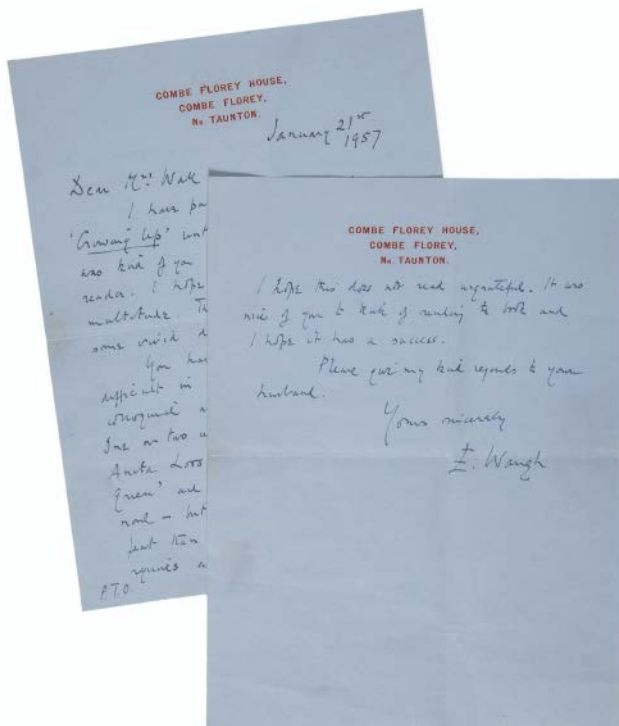 COMBE FLOREY HOUSE,
COMBE FLOREY,
Nr. TAUNTON.
January 21st
1957
Dear Mrs Wall
I have
'Growing Up'
was kind of you
reader. I hope
multitude.
some vivid
You
difficult in
colloquial
One or two
Anita Loos
Green' and
P.T.O.
COMBE FLOREY HOUSE,
COMBE FLOREY,
Nr. TAUNTON.
I hope this does not read ungrateful. It was
nice of you to think of sending the book and
I hope it has a success.
Please give my kind regards to your
husband.
Yours sincerely
E. Waugh